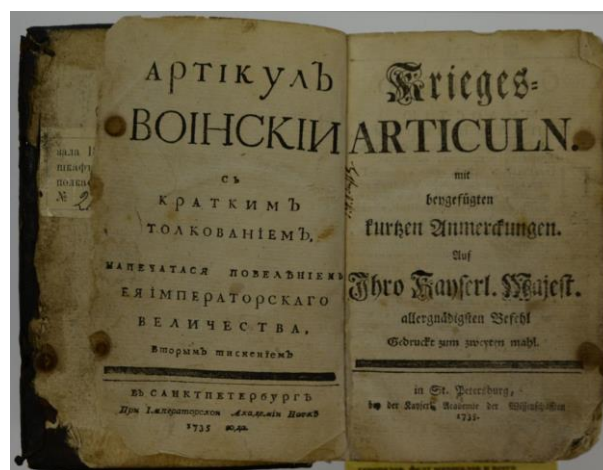 зала
шкафъ
полка
№ 2
АРТІКУЛЪ
ВОІНСКІИ
СЪ
КРАТКИМЪ
ТОЛКОВАНІЕМЪ.
НАПЕЧАТАСЯ ПОВЕЛѢНІЕМЪ
ЕЯ ІМПЕРАТОРСКАГО
ВЕЛИЧЕСТВА,
Вторымъ тисненіемъ
ВЪ САНКТПЕТЕРБУРГѢ
При Імператорскои Академіи Наукъ
1735 года.
Krieges=
ARTICULN.
mit
beygefügten
kurtzen Anmerckungen.
Auf
Ihro Kayserl. Majest.
allergnädigsten Befehl
Gedruckt zum zweyten mahl.
in St. Petersburg,
bey der Kayserl. Academie der Wissenschafften
1735.